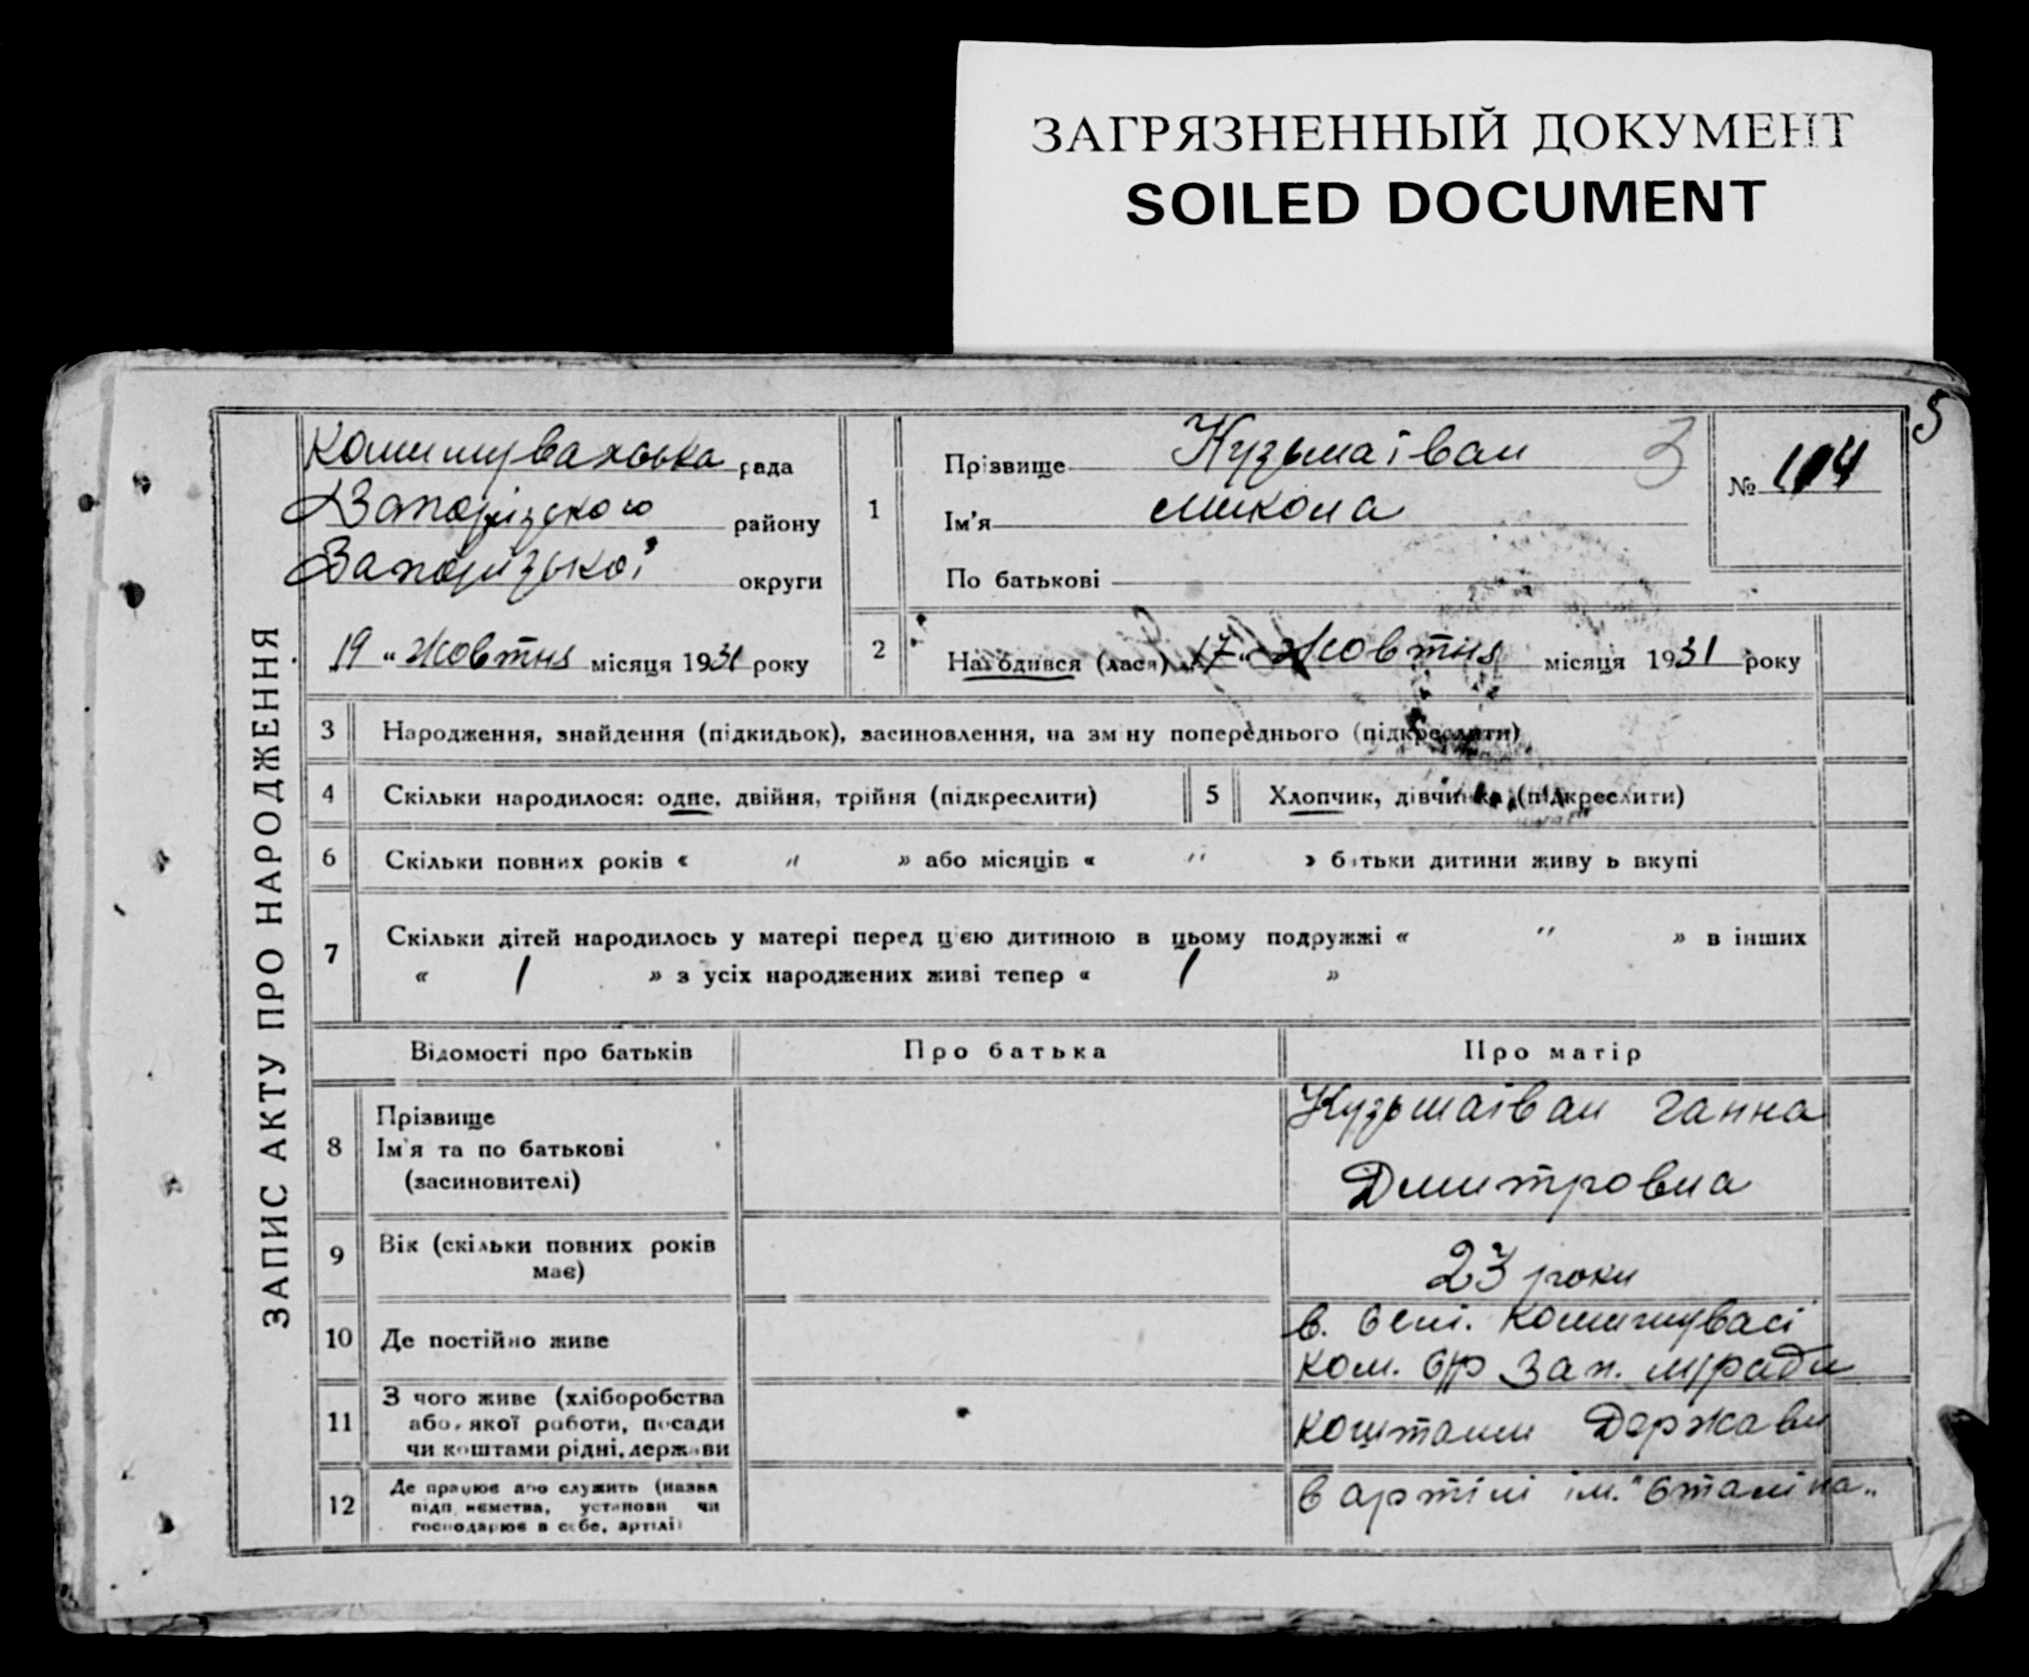 ЗАГРЯЗНЕННЫЙ ДОКУМЕНТ
SOILED DOCUMENT
5
ЗАПИС АКТУ ПРО НАРОДЖЕННЯ
Комишувахська рада
Запорізского району
Запорізької округи
19 " Жовтня місяця 1931 року
1
Прізвище Кузьмаіван
3
Ім'я микола
По батькові
№ 104
2 Народився (лася) "17" Жовтня місяця 1931 року
3 Народження, знайдення (підкидьок), засиновлення, на зміну попереднього (підкреслити)
4 Скільки народилося: одне, двійня, трійня (підкреслити) 5 Хлопчик, дівчинка (підкреслити)
6 Скільки повних років « " » або місяців « " » батьки дитини живуть вкупі
7 Скільки дітей народилось у матері перед цією дитиною в цьому подружжі « " » в інших
« 1 » з усіх народжених живі тепер « 1 »
Відомості про батьків Про батька Про матір
8 Прізвище
Ім'я та по батькові
(засиновителі)
Кузьмаіван Ганна
Дмитровна
9 Вік (скільки повних років
має)
23 роки
10 Де постійно живе
в. селі. Комишувасі
Ком. с/р Зап. м/ради
11 З чого живе (хліборобства
або якої роботи, посади
чи коштами рідні, держави
коштами Держави
12 Де працює або служить (назва
підприємства, установи чи
господарює в себе, артілі)
в артілі ім. "Сталіна"